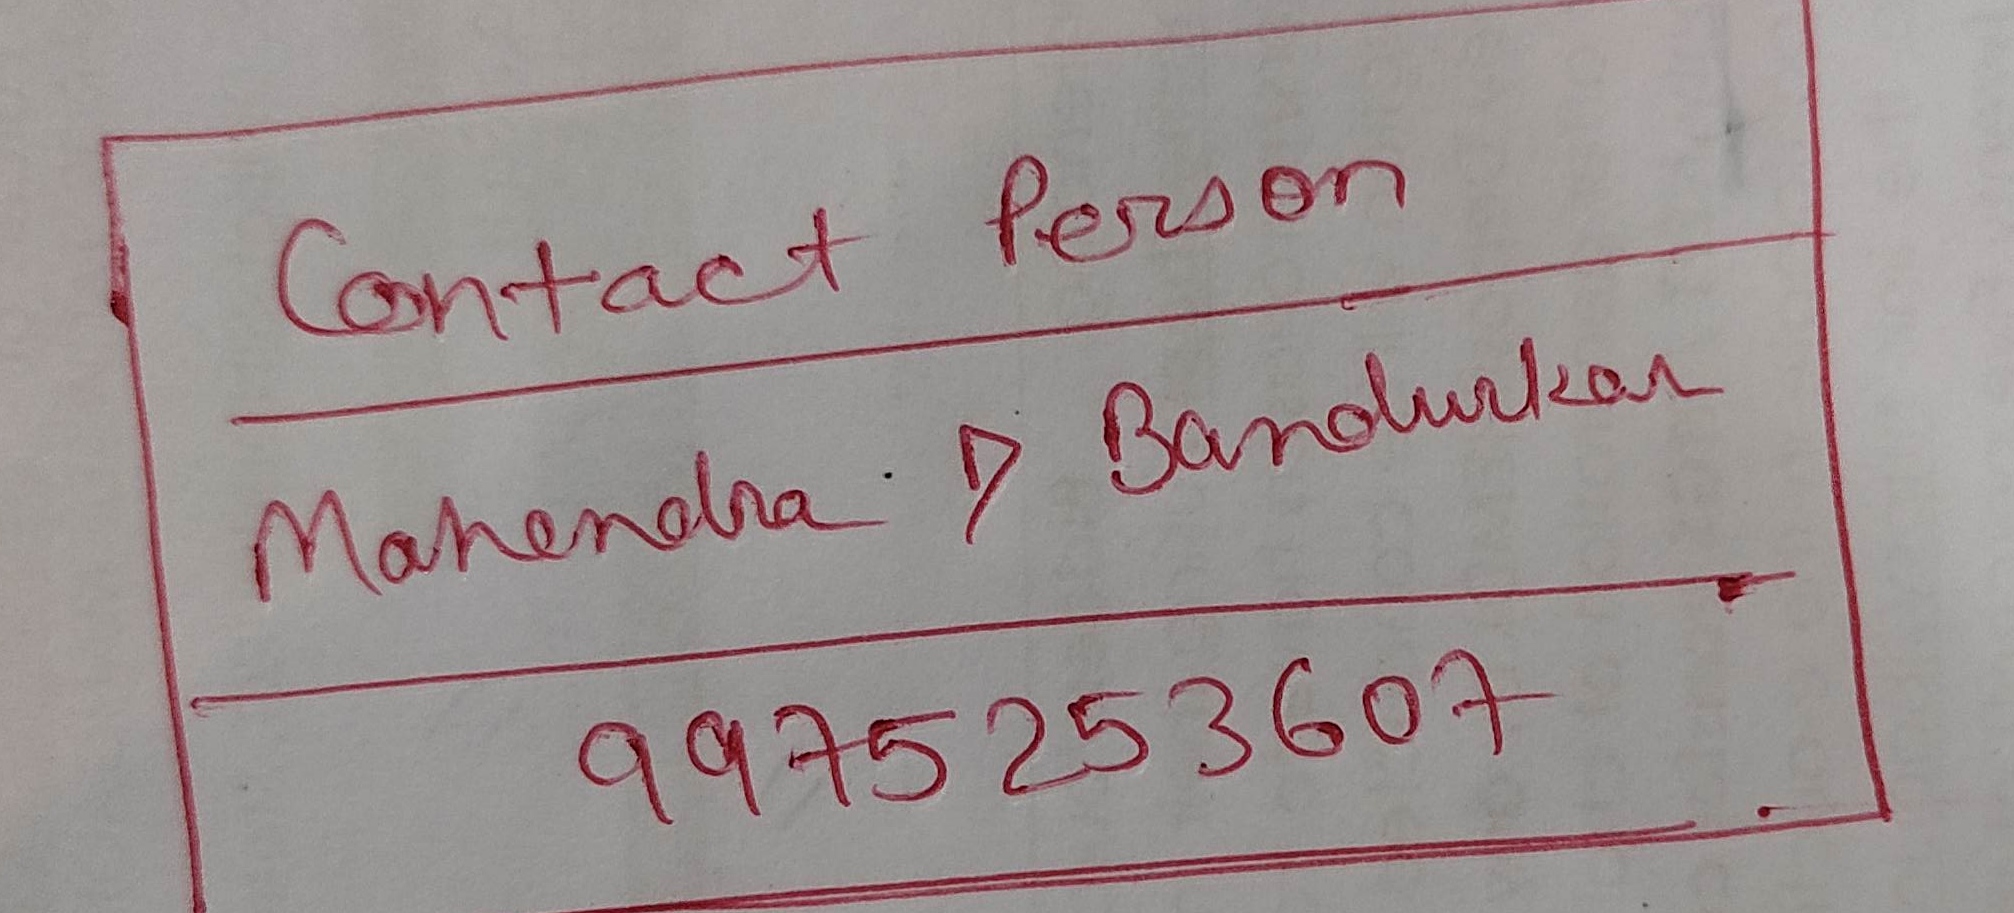 Contact Person
Mahendra D Bandurkar
9975253607